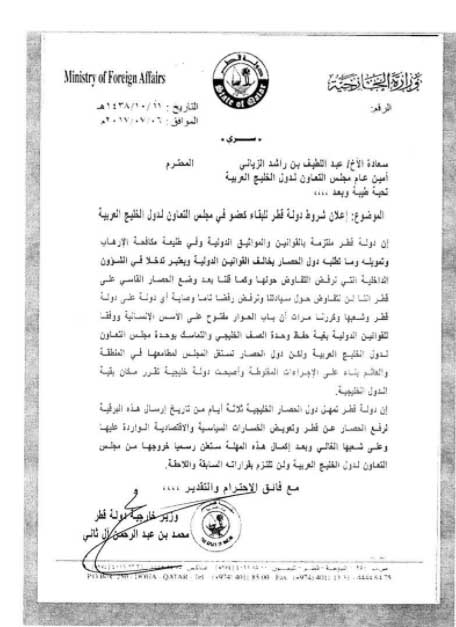 Ministry of Foreign Affairs
دولة قطر
State of Qatar
وزارة الخارجية
التاريخ : ١٤٣٨/١٠/١٢هـ
الرقم:
الموافق : ٢٠١٧/٠٧/٠٦م
- سري -
سعادة الأخ/ عبد اللطيف بن راشد الزياني المحترم
أمين عام مجلس التعاون لدول الخليج العربية
تحية طيبة وبعد ،،،،
الموضوع: إعلان شروط دولة قطر للبقاء كعضو في مجلس التعاون لدول الخليج العربية
إن دولة قطر ملتزمة بالقوانين والمواثيق الدولية وفي طليعة مكافحة الإرهاب
وتمويله وما تطلبه دول الحصار يخالف القوانين الدولية ويعتبر تدخلا في الشؤون
الداخلية التي نرفض التفاوض حولها وكما قلنا بعد وضع الحصار القاسي على
قطر اننا لن نتفاوض حول سيادتنا ونرفض رفضا تاما وصاية أي دولة على دولة
قطر وشعبها وكررنا مرات أن باب الحوار مفتوح على الأسس الإنسانية ووفقا
للقوانين الدولية بغية حفظ وحدة الصف الخليجي والتماسك بوحدة مجلس التعاون
لدول الخليج العربية ولكن دول الحصار تستغل المجلس لمطامعها في المنطقة
والعالم بناء على الإجراءات الملفوظة وأصبحت دولة خليجية تقرر مكان بقية
الدول الخليجية.
إن دولة قطر تمهل دول الحصار الخليجية ثلاثة أيام من تاريخ إرسال هذه البرقية
لرفع الحصار عن قطر وتعويض الخسارات السياسية والاقتصادية الواردة عليها
وعلى شعبها الغالي وبعد إكمال هذه المهلة ستعلن رسميا خروجها من مجلس
التعاون لدول الخليج العربية ولن تلتزم بقراراته السابقة واللاحقة.
مع فائق الاحترام والتقدير ،،،،
وزير خارجية دولة قطر
محمد بن عبد الرحمن آل ثاني
P.O Box: 250 - DOHA - QATAR - Tel